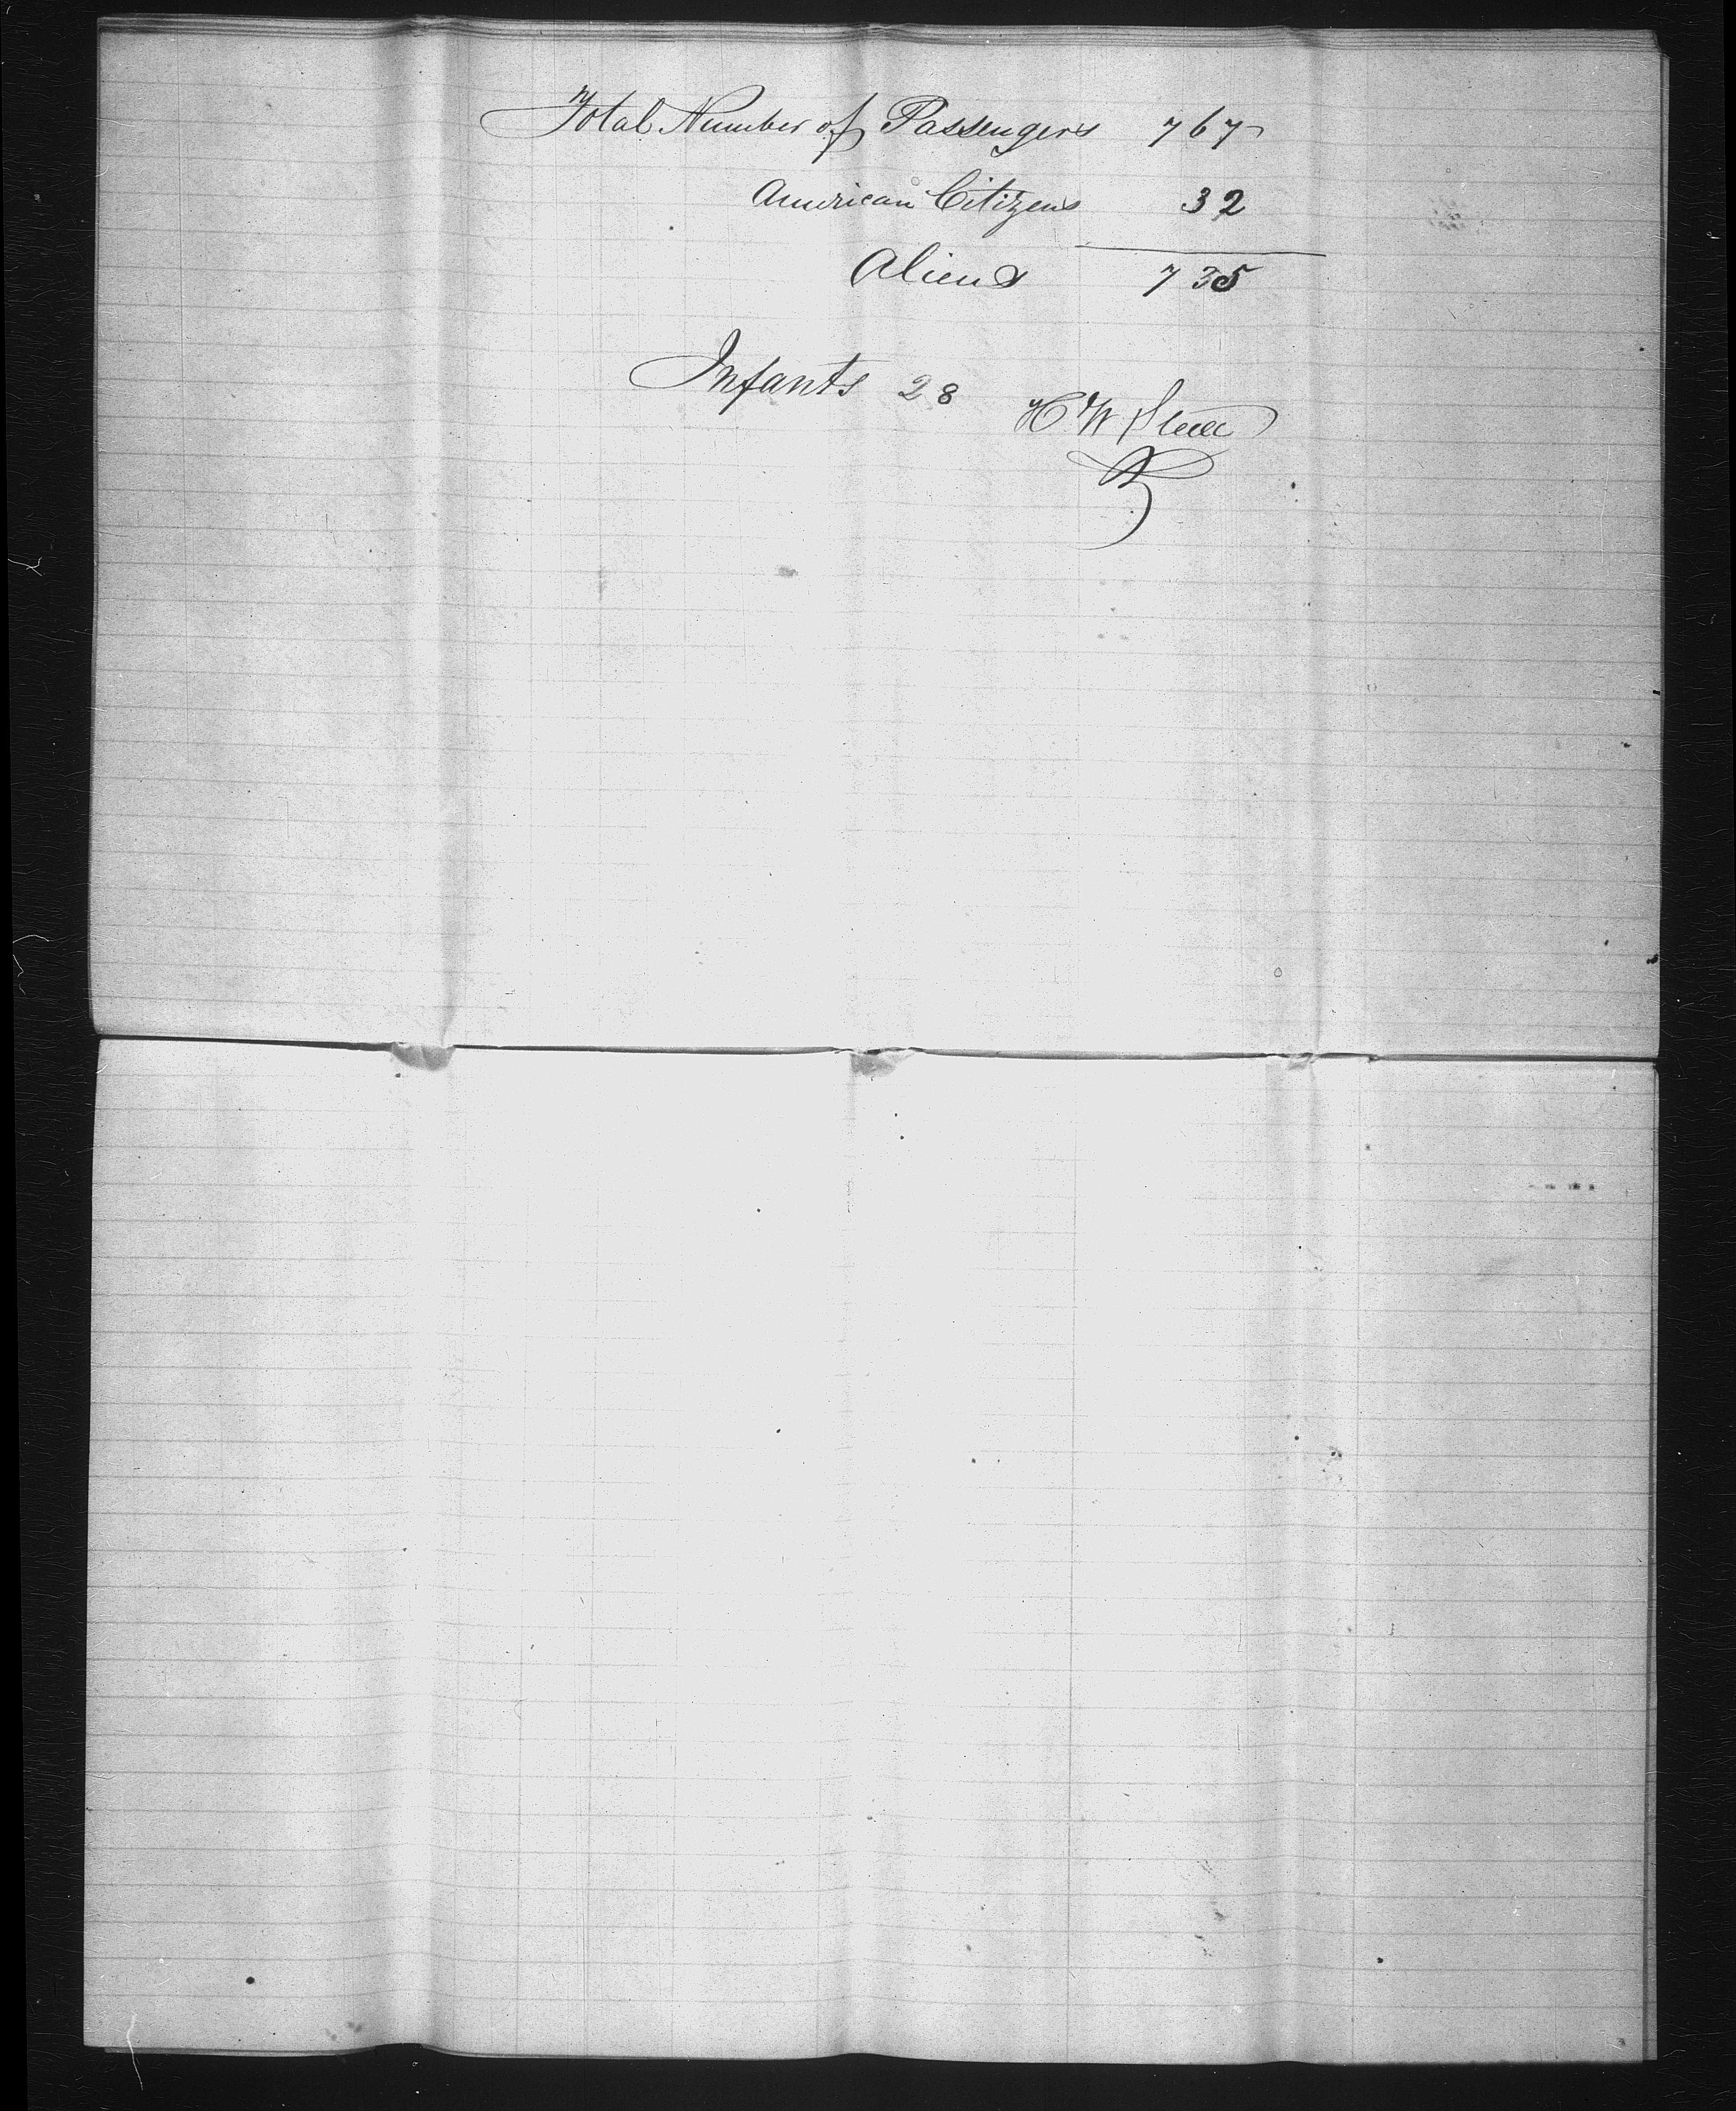 Total Number of Passengers 767
American Citizens 32
Aliens 735
Infants 28
H W